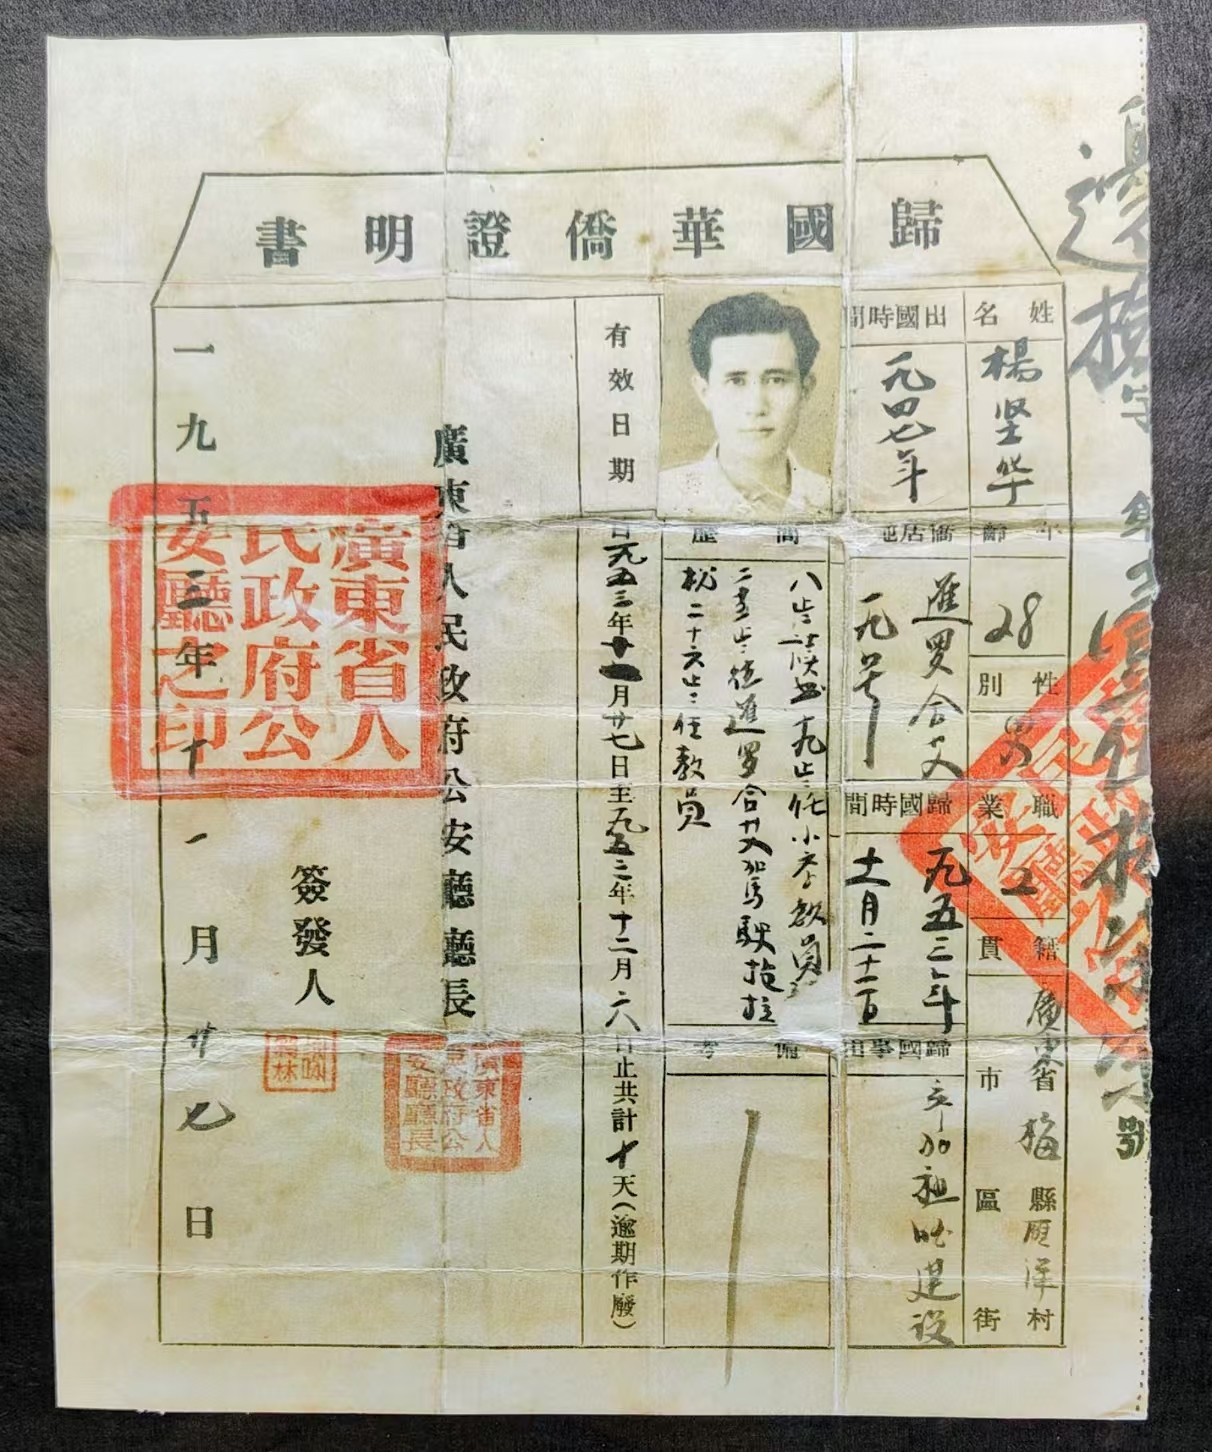 歸國華僑證明書
姓名
楊坚华
年齡
28
性別
男
職業
工
籍貫
廣東省梅縣 洋村
市區街
出國時間
一九四七年
僑居地
暹罗合艾
一九号
歸國時間
一九五三年
十一月二十二日
歸國事由
参加祖国建设
簡歷
八岁读书 十九岁任小学教员
二十 岁往暹罗合艾驾驶拖拉
机 二十六岁任教员
備考
有效日期
自一九五三年十一月廿七日至一九五三年十二月六日止共計十天(逾期作廢)
廣東省人民政府公安廳廳長
廣東省人民政府公安廳廳長
簽發人
一九五三年十一月廿七日
廣東省人民政府公安廳之印
邊 字
號